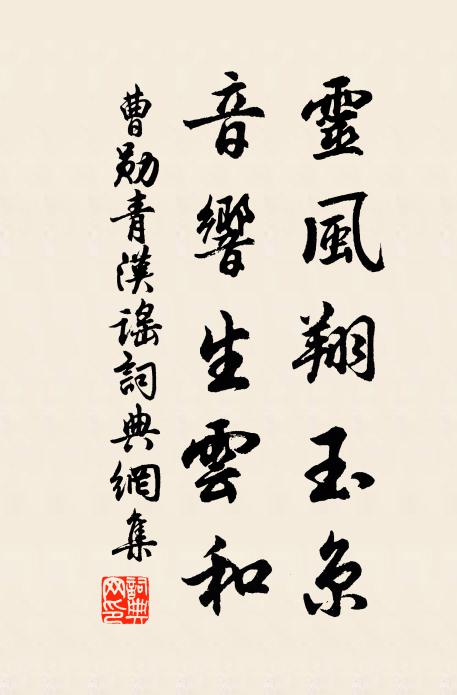 靈風翔玉京
音響生雲和
曹勛青漢謠詞典網集
詞典網印